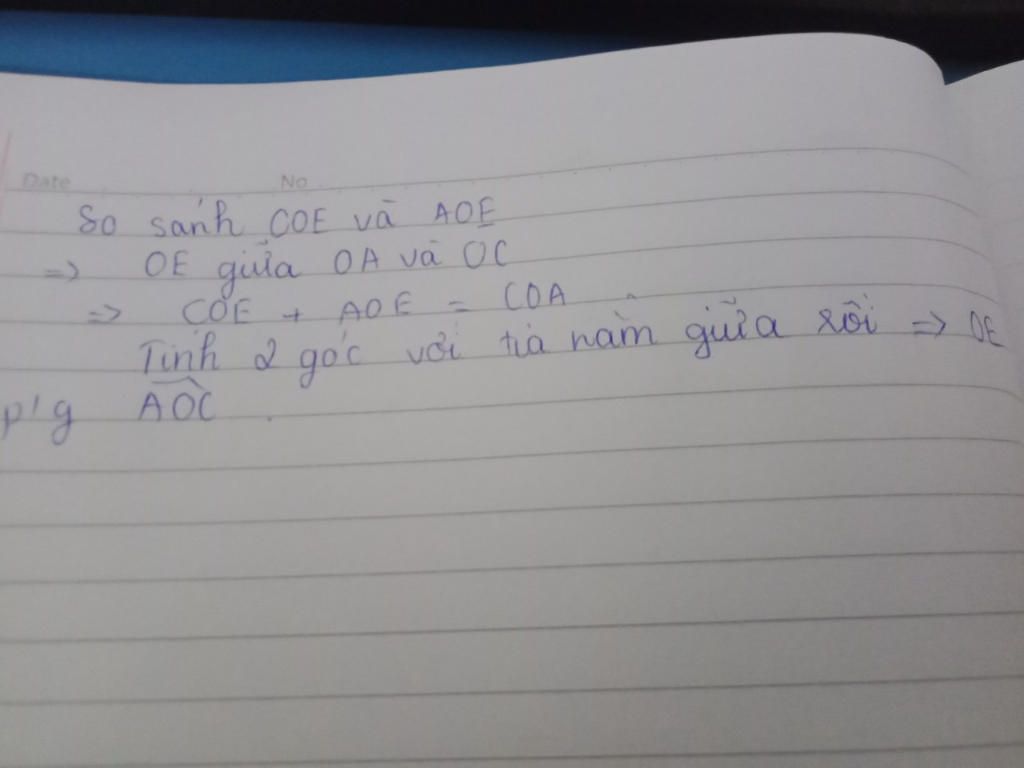 Date No
So sánh COE và AOE
=> OE giữa OA và OC
=> COE + AOE = COA
Tính 2 góc với tia nằm giữa rồi => OE
p/g AOC.